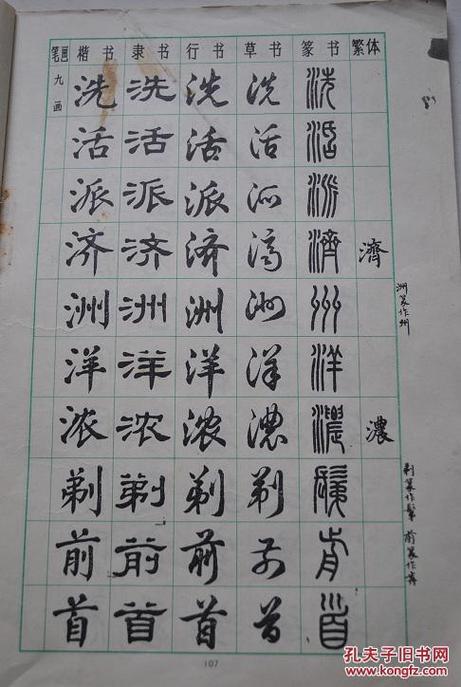 笔画 楷书 隶书 行书 草书 篆书 繁体
九画 洗 洗 洗 洗 洗
活 活 活 活 活
派 派 派 派 派
济 济 济 济 濟 濟
洲 洲 洲 洲 州
洲篆作州
洋 洋 洋 洋 洋
浓 浓 浓 濃 濃 濃
剃 剃 剃 剃 鬀
剃篆作鬀 前篆作歬
前 前 前 前 歬
首 首 首 首 首
107
孔夫子旧书网